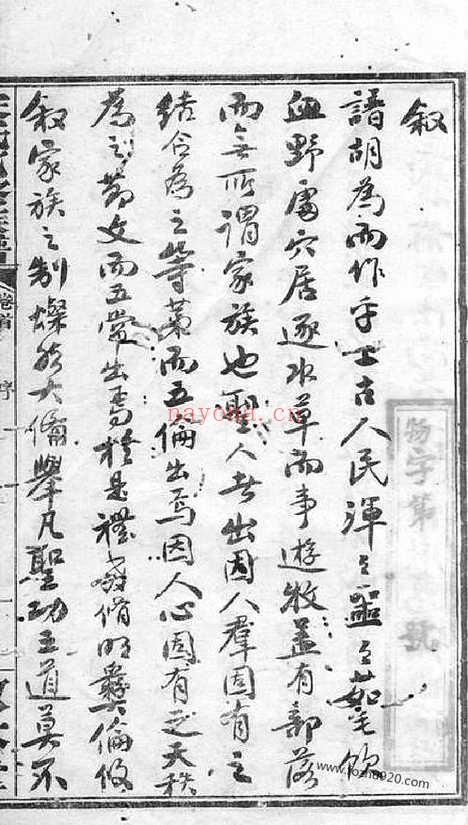 叙
譜胡為而作乎上古人民渾之噩之茹毛飲
血野處穴居逐水草而事遊牧蓋有部落
而無所謂家族也聖人者出因人羣固有之
結合為之等第而五倫出焉因人心固有之天秩
為之節文而五常出焉於是禮義脩明彝倫攸
叙家族之制燦然大備舉凡聖功王道莫不
卷首
序
物字第
號
nayona.cn
www.fozhu920.com